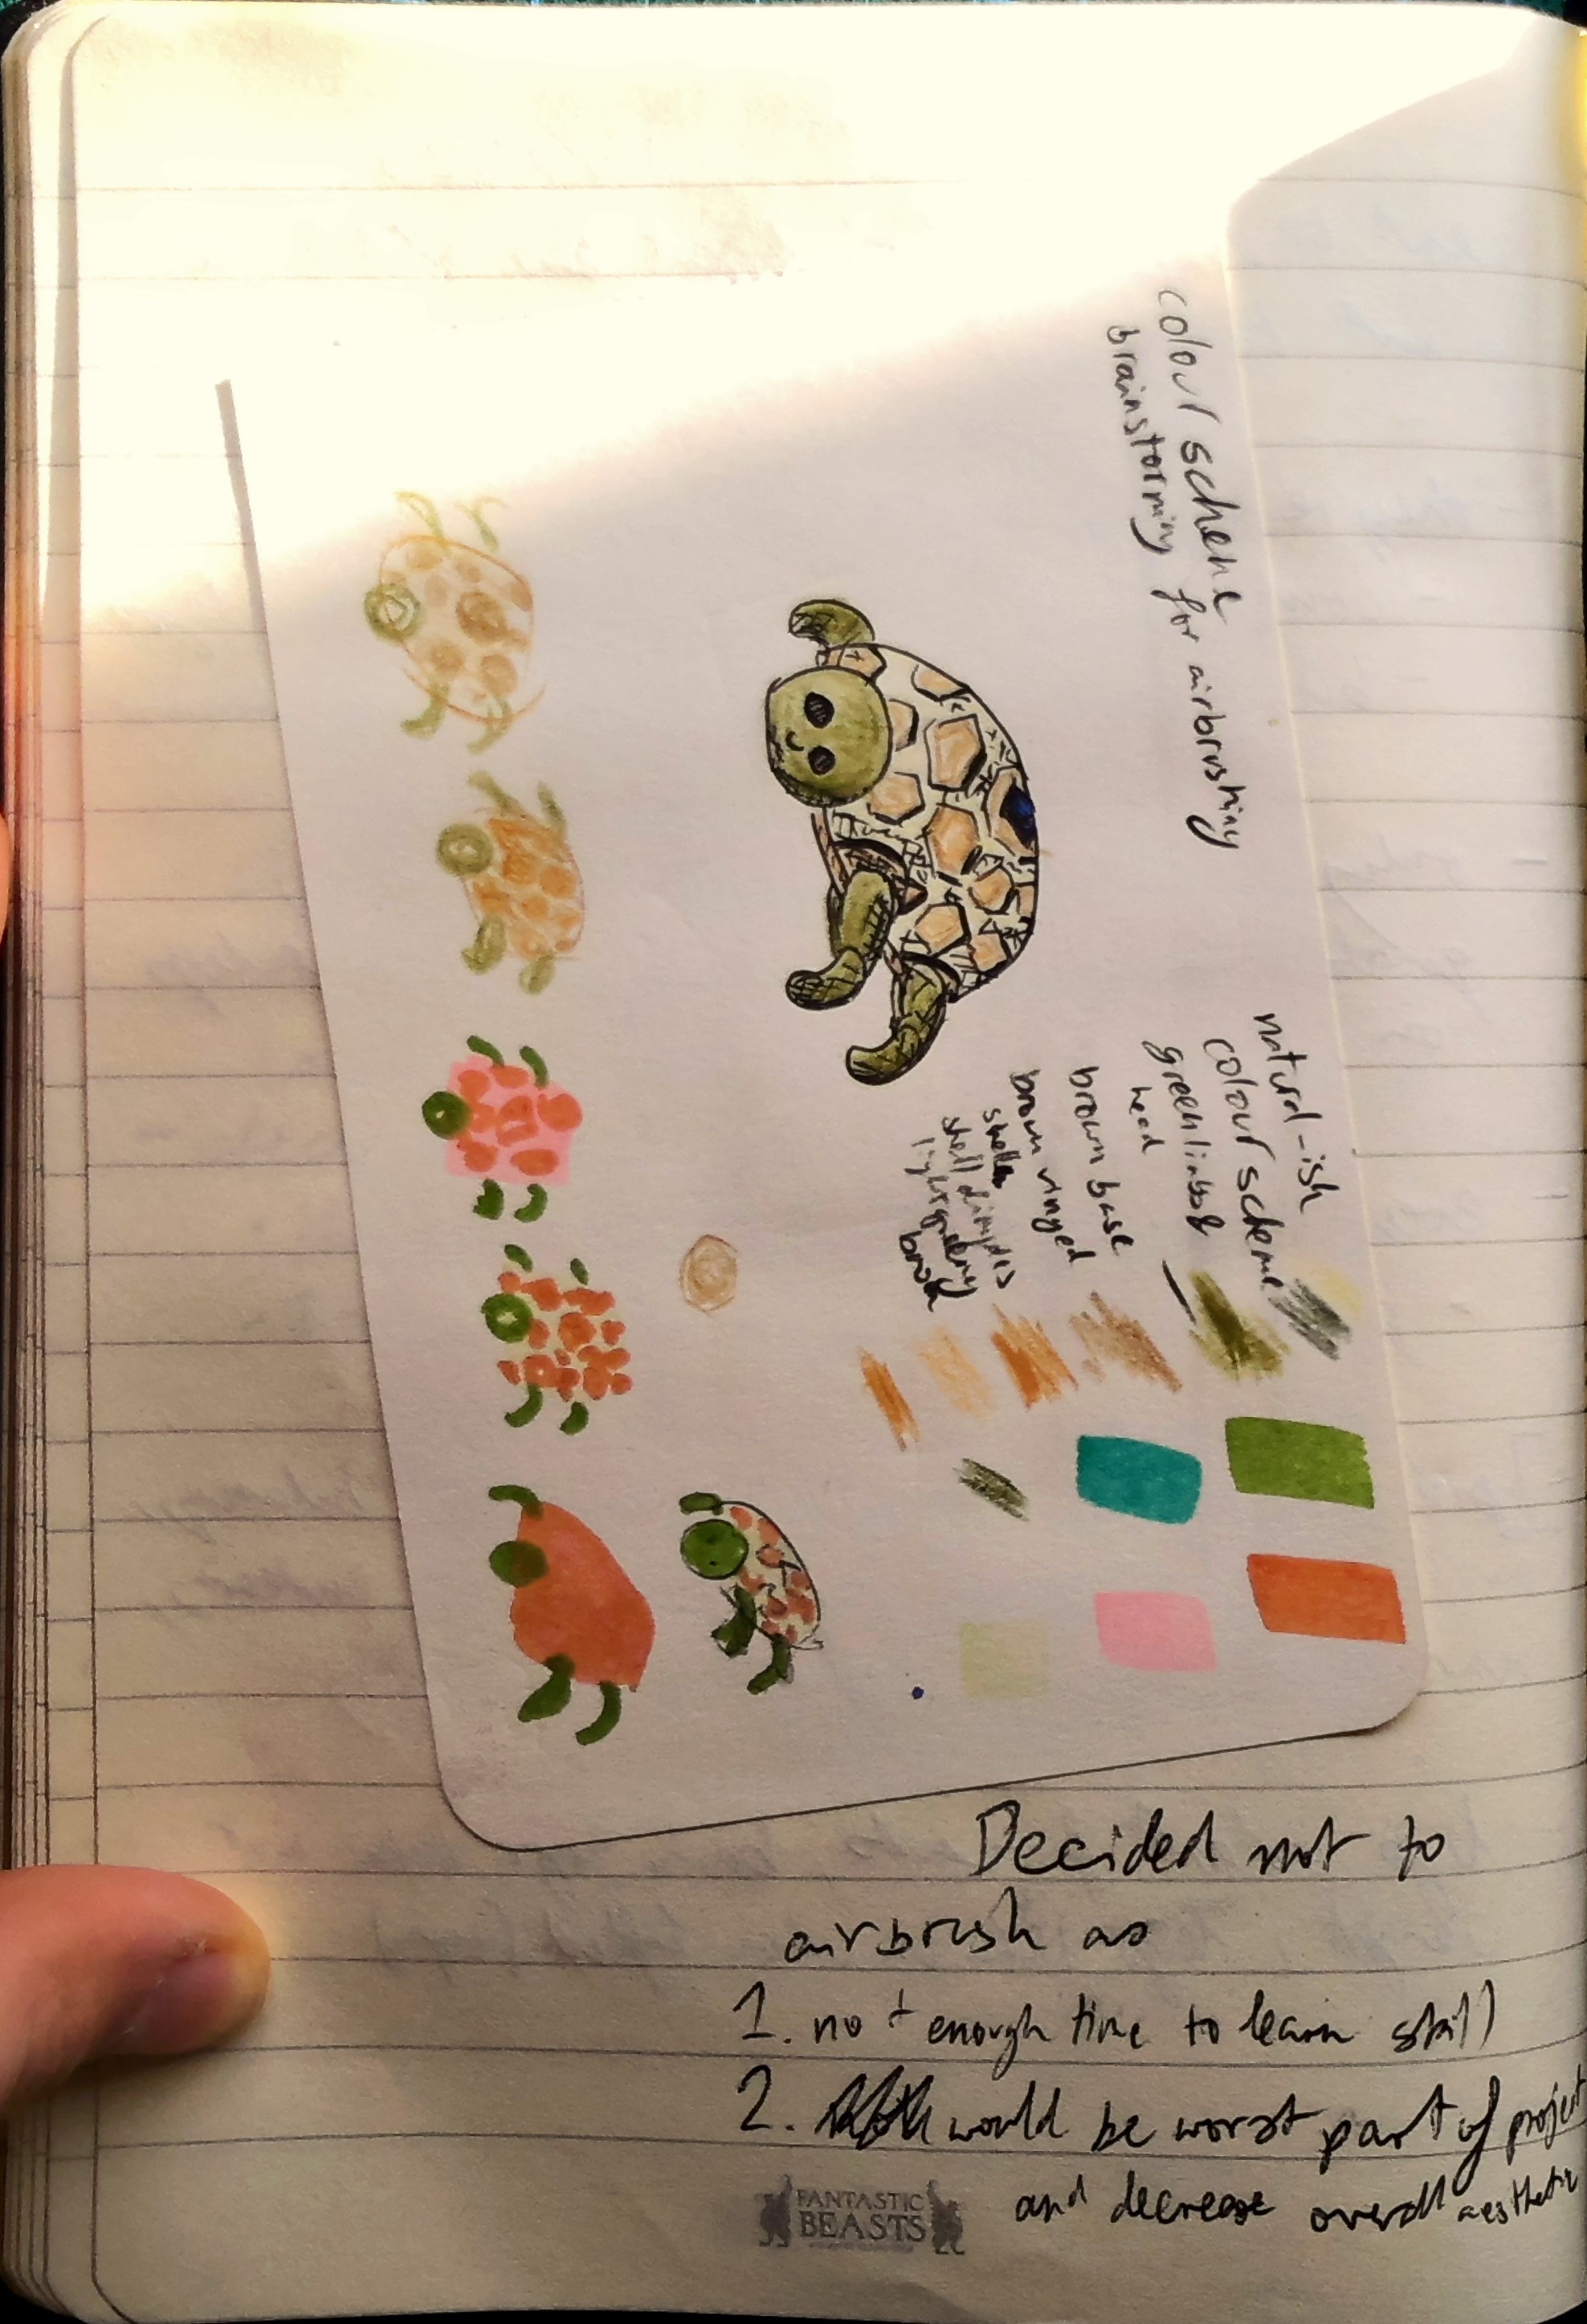 colour scheme
brainstorming for airbrushing
natural-ish
colour scheme
green limbs &
head
brown base
brown ringed
shell dimples
light greeny
Decided not to
airbrush as
1. not enough time to learn skill
2. would be worst part of project
and decrease overall aesthetic
FANTASTIC
BEASTS